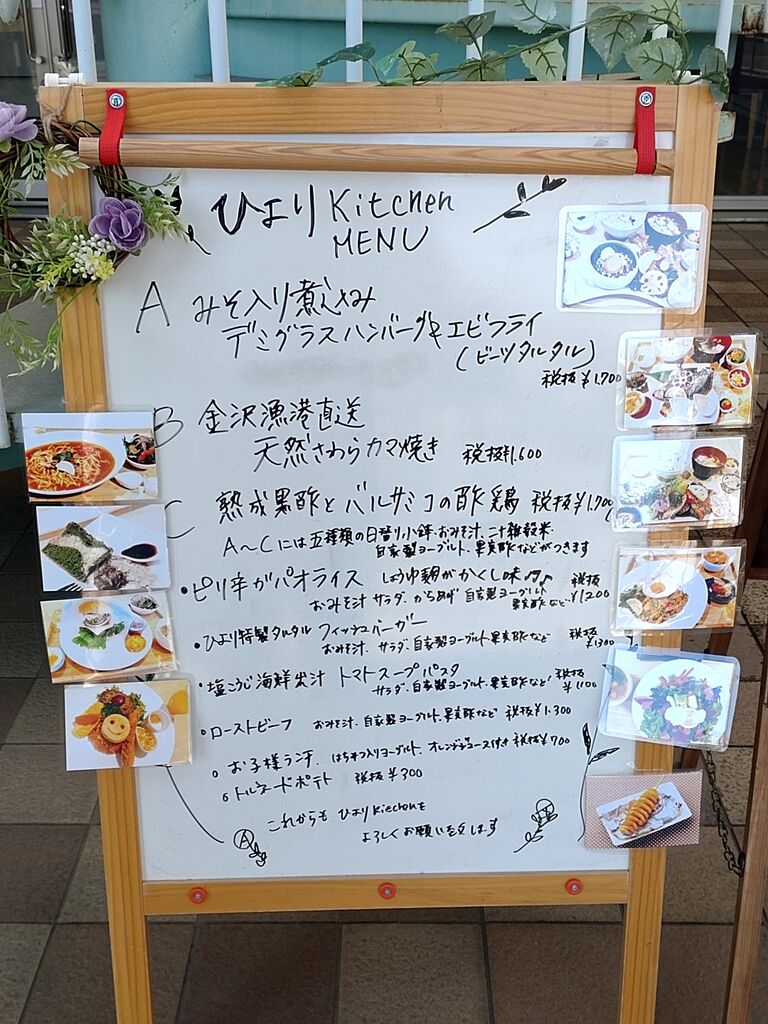 ひより Kitchen
MENU
A みそ入り煮込み
デミグラスハンバーグ&エビフライ
(ビーツタルタル)
税抜¥1.700
B 金沢漁港直送
天然さわらカマ焼き 税抜¥1.600
C 熟成黒酢とバルサミコの酢鶏 税抜¥1.700
A〜Cには五種類の日替り小鉢.おみそ汁.二十雑穀米.
自家製ヨーグルト.果実酢などがつきます
・ピリ辛ガパオライス しょうゆ麹がかくし味♫♪ 税抜
おみそ汁 サラダ.からあげ 自家製ヨーグルト 果実酢など ¥1200
・ひより特製タルタル フィッシュバーガー 税抜
おみそ汁.サラダ.自家製ヨーグルト.果実酢など ¥1300
・塩こうじ海鮮出汁 トマトスープパスタ 税抜
サラダ.自家製ヨーグルト.果実酢など ¥1100
・ローストビーフ おみそ汁.自家製ヨーグルト.果実酢など 税抜¥1.300
・お子様ランチ. はちみつ入りヨーグルト.オレンジジュース付き 税抜¥700
・トルネードポテト 税抜¥300
これからも ひよりKitchenを
よろしくお願い致します